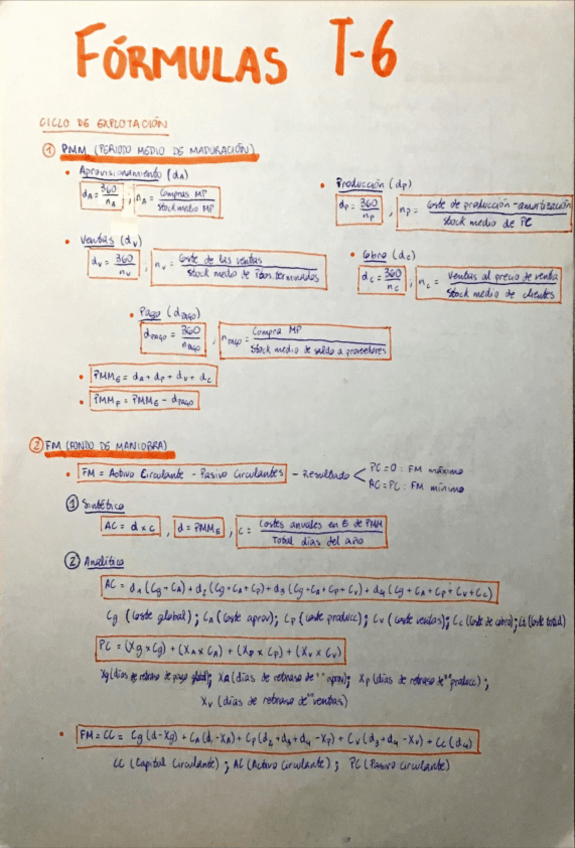 FÓRMULAS T-6
CICLO DE EXPLOTACIÓN
① PMM (PERIODO MEDIO DE MADURACIÓN)
• Aprovisionamiento (dA)
dA = 360 / nA ; nA = Compras MP / Stock medio MP
• Producción (dp)
dp = 360 / np , np = Coste de producción - amortización / Stock medio de PC
• Ventas (dv)
dv = 360 / nv , nv = Coste de las ventas / Stock medio de Ptos. terminados
• Cobro (dc)
dc = 360 / nc , nc = Ventas al precio de venta / Stock medio de clientes
• Pago (dpago)
dpago = 360 / npago , npago = Compra MP / Stock medio de saldo a proveedores
• PMME = dA + dp + dv + dc
• PMMF = PMME - dpago
② FM (FONDO DE MANIOBRA)
• FM = Activo Circulante - Pasivo Circulantes - Resultado
PC = 0 : FM máximo
AC = PC : FM mínimo
① Sintético
AC = d x c , d = PMME , c = Costes anuales en € de PMM / Total días del año
② Analítico
AC = d1 (Cg + CA) + d2 (Cg + CA + Cp) + d3 (Cg + CA + Cp + Cv) + d4 (Cg + CA + Cp + Cv + Cc)
Cg (coste global) ; CA (coste aprov) ; Cp (coste producc) ; Cv (coste ventas) ; Cc (coste de cobro) ; (coste total)
PC = (Xg x Cg) + (XA x CA) + (Xp x Cp) + (Xv x Cv)
Xg (días de retraso de pago global) ; XA (días de retraso de " " aprov) ; Xp (días de retraso de " " producc) ;
Xv (días de retraso de " " ventas)
• FM = CC = Cg (d - Xg) + CA (d - XA) + Cp (d2 + d3 + d4 - Xp) + Cv (d3 + d4 - Xv) + Cc (d4)
CC (Capital Circulante) ; AC (Activo Circulante) ; PC (Pasivo Circulante)